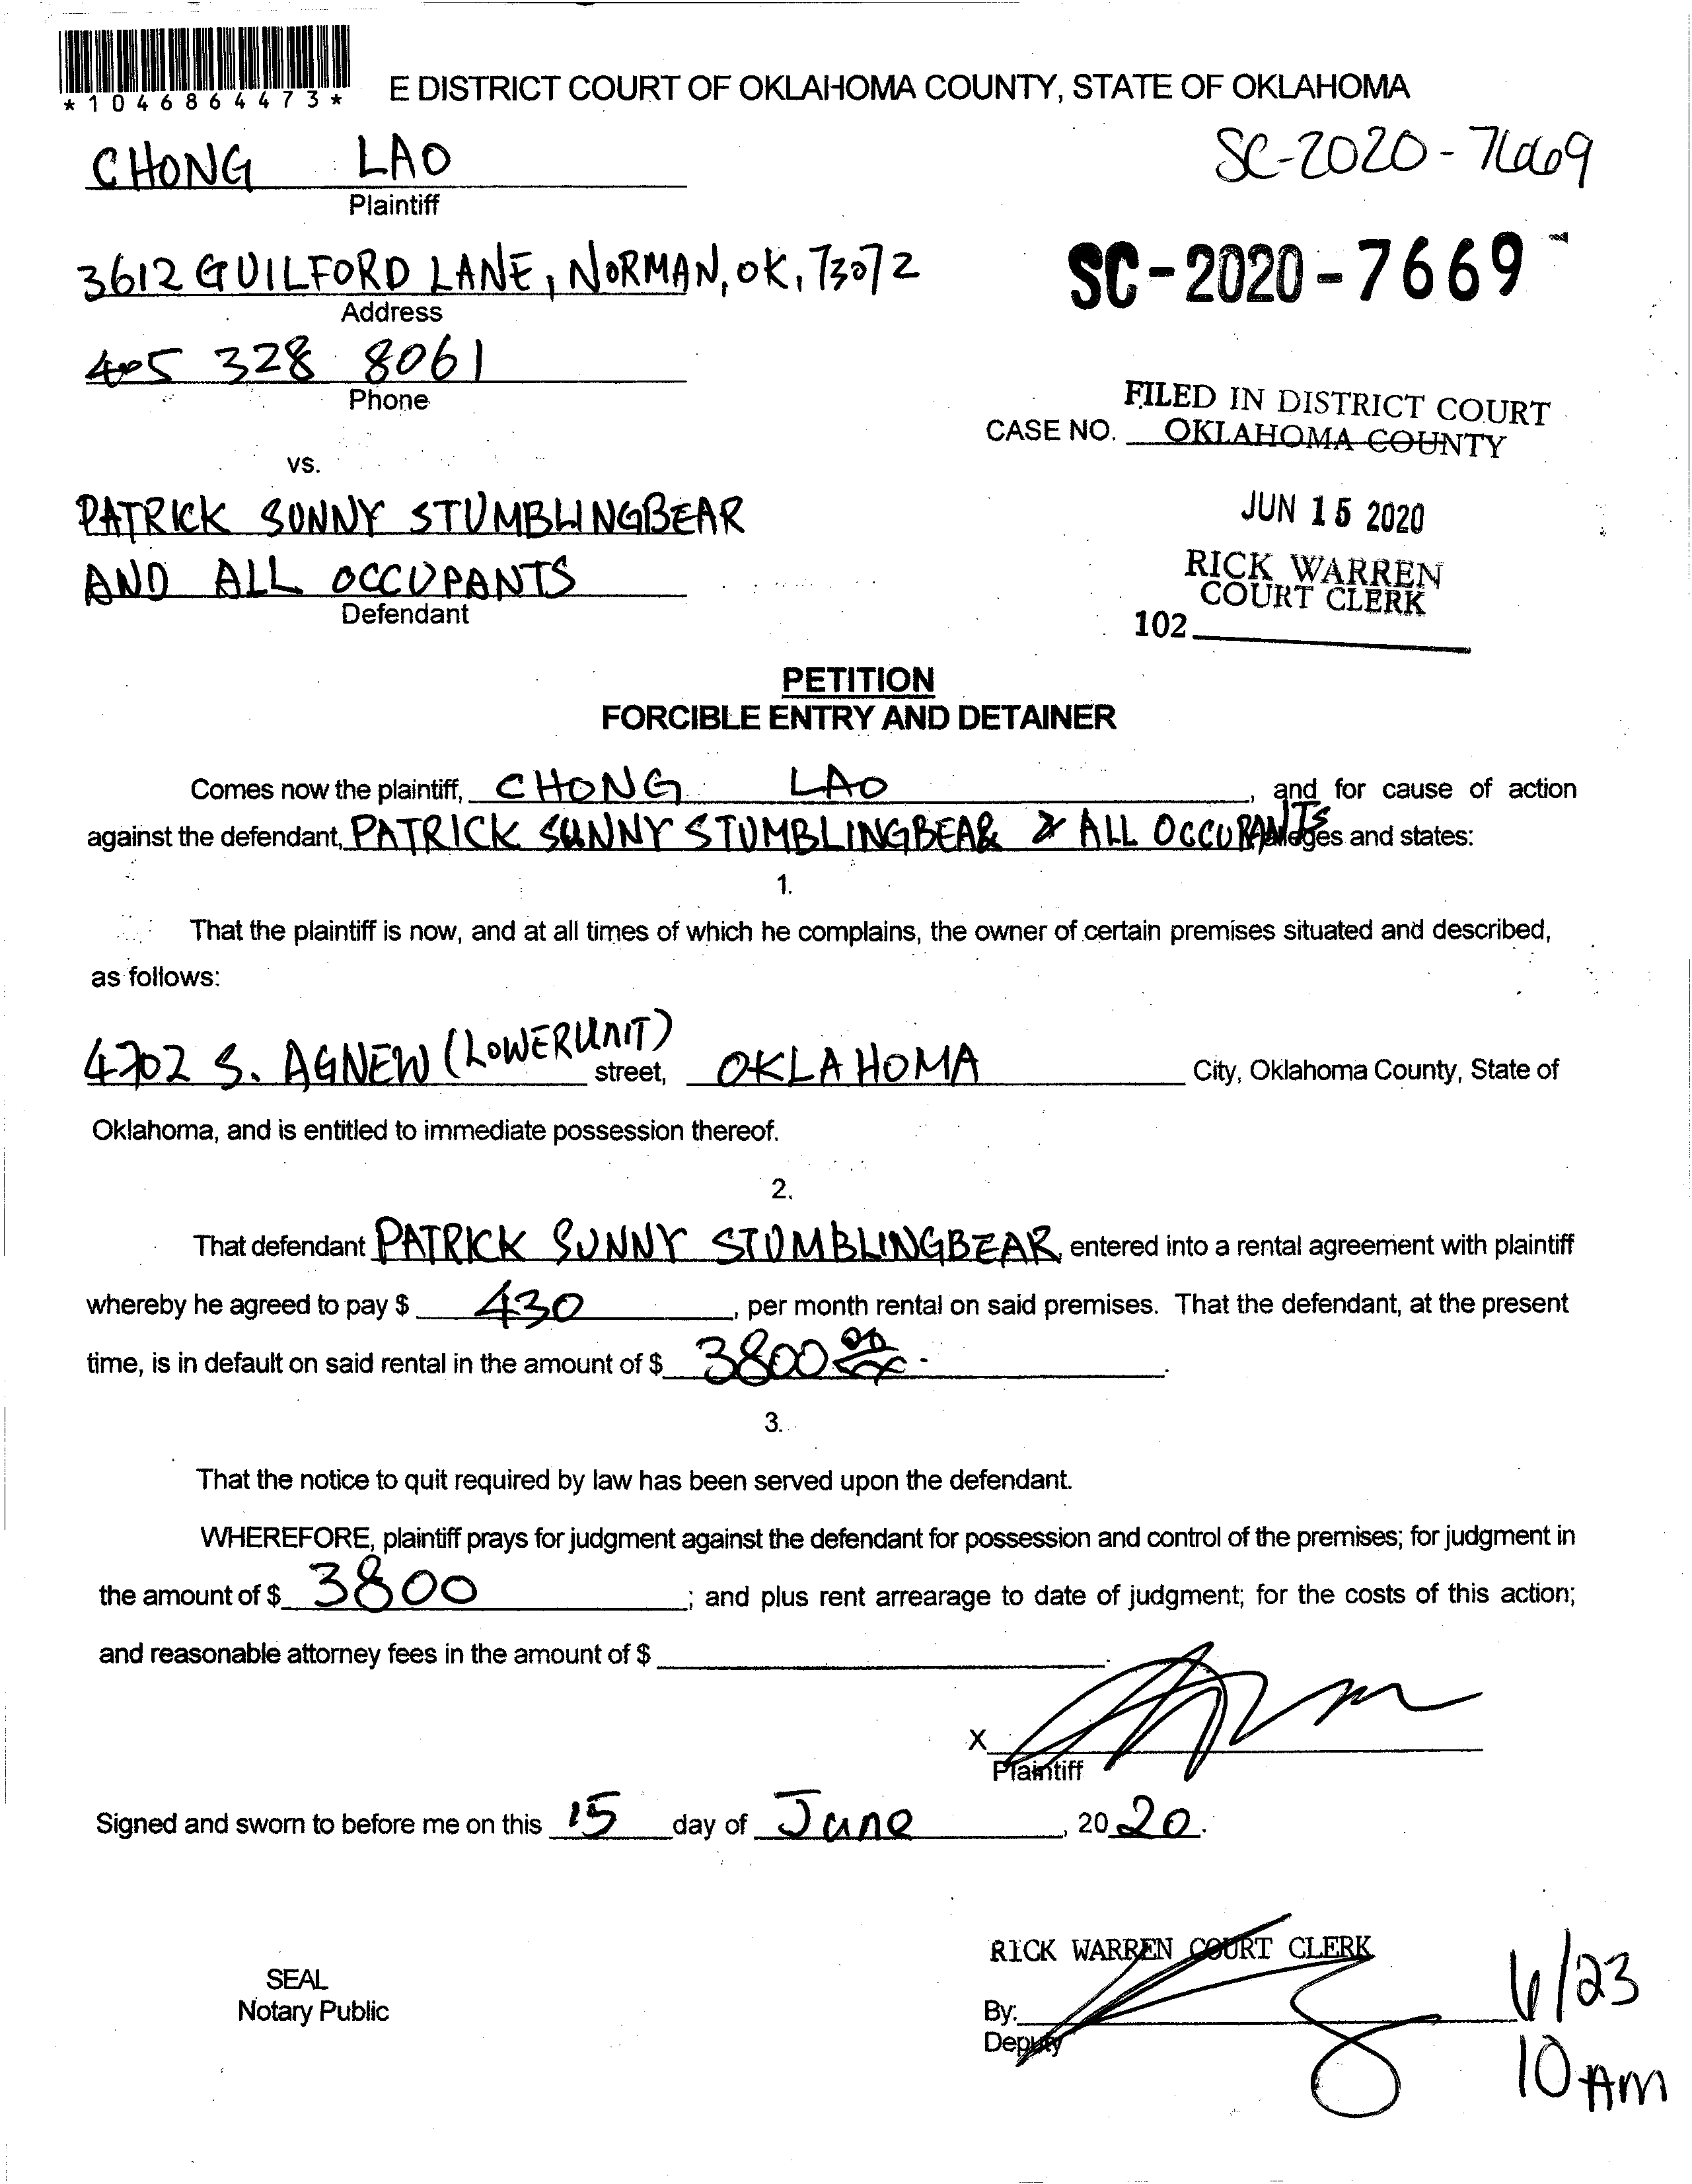 *1046864473*
E DISTRICT COURT OF OKLAHOMA COUNTY, STATE OF OKLAHOMA
CHONG LAO
Plaintiff
SC-2020-7669
3612 GUILFORD LANE, NORMAN, OK, 73072
Address
SC-2020-7669
405 328 8061
Phone
FILED IN DISTRICT COURT
CASE NO. OKLAHOMA COUNTY
vs.
PATRICK SUNNY STUMBLINGBEAR
JUN 15 2020
AND ALL OCCUPANTS
Defendant
RICK WARREN
COURT CLERK
102
PETITION
FORCIBLE ENTRY AND DETAINER
Comes now the plaintiff, CHONG LAO, and for cause of action
against the defendant, PATRICK SUNNY STUMBLINGBEAR & ALL OCCUPANTS alleges and states:
1.
That the plaintiff is now, and at all times of which he complains, the owner of certain premises situated and described,
as follows:
4702 S. AGNEW (LOWER UNIT) street, OKLAHOMA City, Oklahoma County, State of
Oklahoma, and is entitled to immediate possession thereof.
2.
That defendant PATRICK SUNNY STUMBLINGBEAR entered into a rental agreement with plaintiff
whereby he agreed to pay $ 430, per month rental on said premises. That the defendant, at the present
time, is in default on said rental in the amount of $ 3800 00/xx.
3.
That the notice to quit required by law has been served upon the defendant.
WHEREFORE, plaintiff prays for judgment against the defendant for possession and control of the premises; for judgment in
the amount of $ 3800; and plus rent arrearage to date of judgment; for the costs of this action;
and reasonable attorney fees in the amount of $
X
Plaintiff
Signed and sworn to before me on this 15 day of June, 2020.
RICK WARREN COURT CLERK
SEAL
Notary Public
By:
Deputy
6/23
10 AM